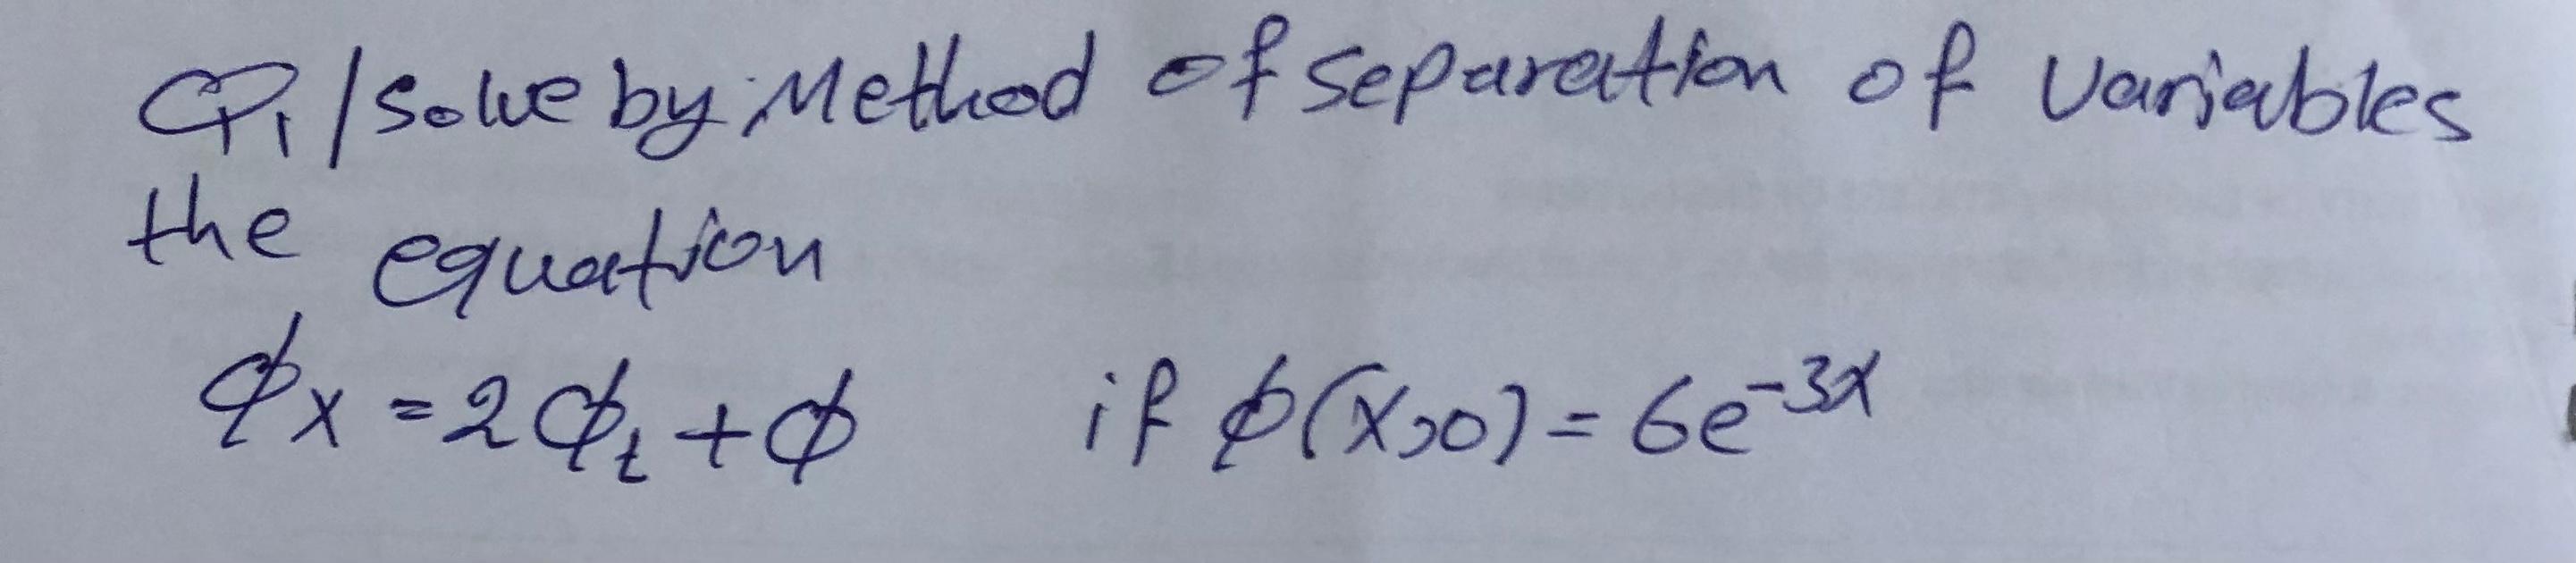 Q1/solve by Method of separation of variables
the equation
ϕx = 2ϕt + ϕ if ϕ(x,0) = 6e^-3x